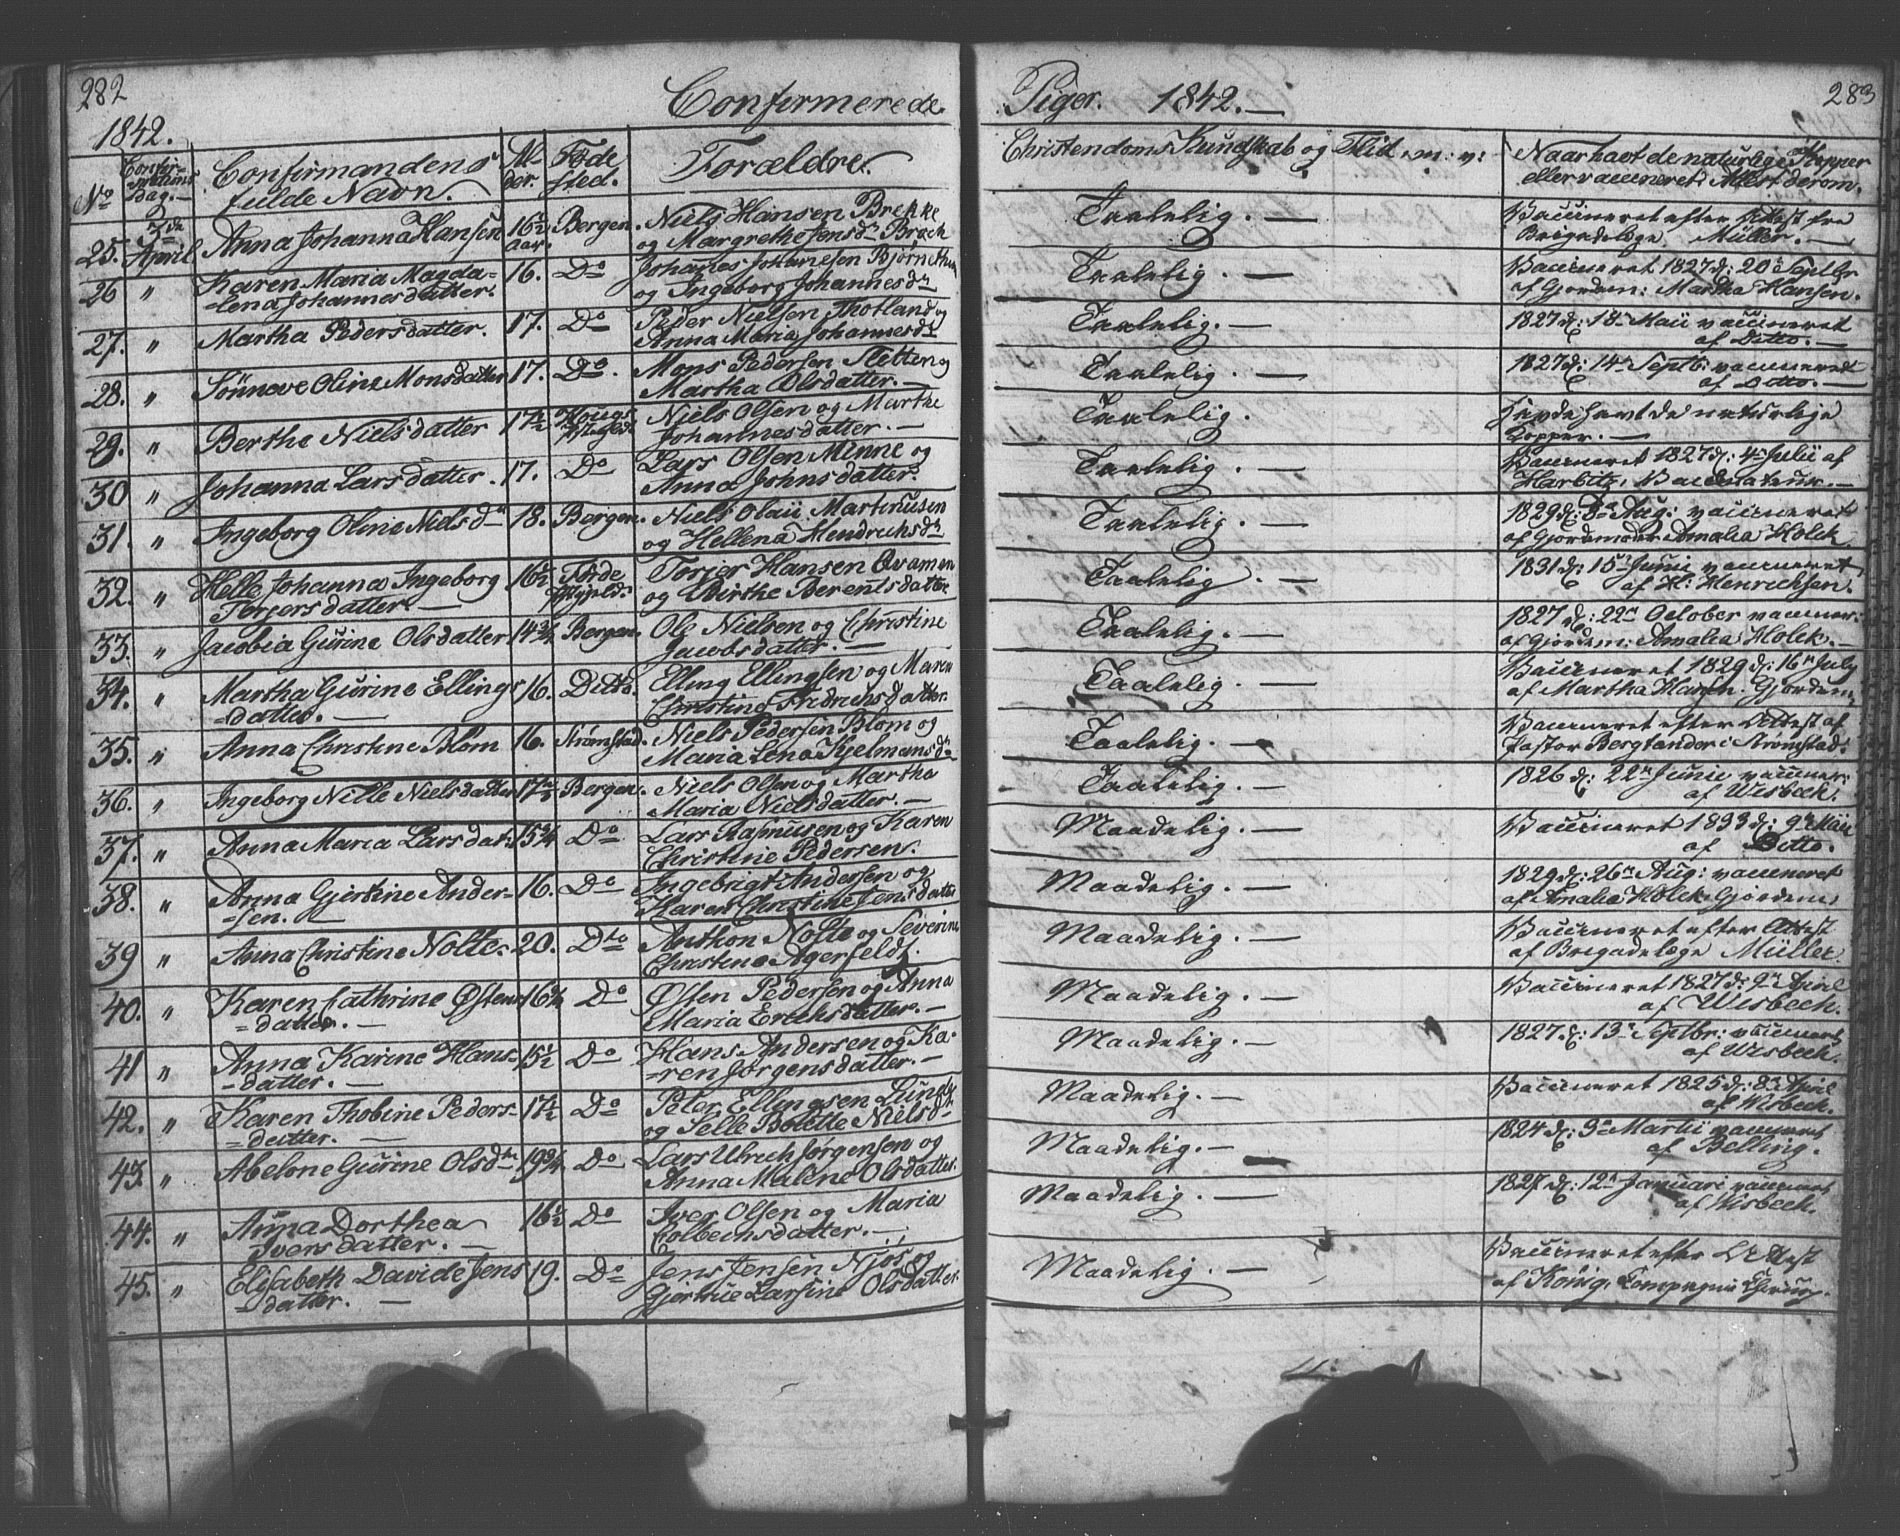 282
Confirmerede
1842.
No
Confirmations Dag.
Confirmandens fulde Navn.
Alder.
Føde sted.
Forældre.
25. 3de April Anna Johanna Hansen 16½ Aar. Bergen. Niels Hansen Brekke
og Margrethe Jensdr Broch
26 " Karen Maria Magda- 16. Do Johannes Johannesen
-lena Johannesdatter. og Ingeborg Johannesdr
27. " Martha Pedersdatter. 17. Do Peder Nielsen Thotland og
Anna Maria Johannesdr
28. " Sønneve Oline Monsdatter 17. Do. Mons Pedersen Sletten og
Martha Olsdatter. —
29. " Berthe Nielsdatter 17½ Niels Olsen og Marthe
Johannesdatter. —
30 " Johanna Larsdatter. 17. Do Lars Olsen Minne og
Anna Johnsdatter.
31. " Ingeborg Oline Nielsdr 18. Bergen. Niels Olaii Martinusen
og Hellena Hendrichsdr
32. " Helle Johanna Ingeborg 16½ Førde Torjer Hansen Qvamen
Torjersdatter. — og Birthe Berentsdatter
33. " Jacobia Gurine Olsdatter 14¾ Bergen. Ole Nielsen og Christine
Jacobsdatter. —
34. " Martha Gurine Ellings 16. Ditto. Elling Ellingsen og Maren
=datter. — Christine Fredrichsdatter.
35. " Anna Christine Blom 16. Strømstad. Niels Pedersen Blom og
Maria Lena Kjelmansdr
36. " Ingeborg Nille Nielsdatter 17½ Bergen. Niels Olsen og Martha
Maria Nielsdatter. —
37. " Anna Maria Larsdat: 15¾ Do Lars Rasmusen og Karen
Christine Pedersen.
38. " Anna Gjertine Ander- 16. Do Ingebrigt Andersen og
-sen. Karen Christine Jensdatter
39 " Anna Christine Nolte. 20. Dto Anthon Nolte og Severine
Christine Agerfeldt.
40. " Karen Cathrine Østens Do Østen Pedersen og Anna
=datter. — Maria Erichsdatter. —
41 " Anna Karine Hans- 15½ Do Hans Andersen og Ka-
-datter. — -ren Jørgensdatter. —
42. " Karen Thobine Peders- 17½ Do Peter Ellingsen Lund
=datter. — og Selle Bolette Nielsdr
43. " Abelone Gurine Olsdtr 19¾ Do Lars Ulrich Jørgensen og
Anna Malene Olsdatter.
44. " Anna Dorthea 16½ Do Iver Olsen og Maria
Iversdatter. — Colbechsdatter. —
45. " Elisabeth Davide Jens 19. Do Jens Jensen Njøs og
=datter. — Gjertrue Larsine Olsdatter.
Piger. 1842. —
283
Christendoms Kundskab og Flid. m: v:
Naar havt de naturlige Kopper
eller vaccineret. Attest derom.
Taalelig. — Vaccineret efter Attest fra
Brigadelæge Müller. —
Taalelig. — Vaccineret 1827 d: 20 Septbr
af Gjordem: Martha Hansen.
Taalelig. — 1827 d: 18 Maii vaccineret
af Ditto. —
Taalelig. — 1827 d: 14 Septb: vaccineret
af Ditto. —
Taalelig. havt de naturlige
Kopper. —
Taalelig. — Vaccineret 1827 d: 4 Julii af
Harbitz, Vaccinateur. —
Taalelig. — Aug: vaccineret
af Gjordemoder Amalia Holck
Taalelig. — 1831 d: 15 Junii vaccineret
af H: Henrichsen.
Taalelig. — 1827 d: 22 October vacciner.
af Gjordem: Amalia Holck. —
Taalelig. — Vaccineret 1829 d: 16 July
af Martha Hansen. Gjordem.
Taalelig. — Vaccineret efter Attest af
Pastor Bergtander i Strømstad.
Taalelig. — 1826 d: 22 Junii vacciner:
af Wisbech.
Maadelig. — Vaccineret 1833 d: 9 Maii
af Ditto.
Maadelig. — 1829 d: 26 Aug: vaccineret
af Amalia Holck, Gjordem.
Maadelig. — Vaccineret efter Attest
af Brigadelæge Müller.
Maadelig. — Vaccineret 1827 d: 9 April
af Wisbech.
Maadelig. — 1827. d: 13 Septbr. vaccineret
af Wisbech.
Maadelig. — Vaccineret 1825 d: 8 April
af Wisbech.
Maadelig. — 1824 d: 3 Martii vaccineret
af Belling.
Maadelig. — 1827 d: 12 Januari vaccineret
af Wisbech.
Maadelig. — Vaccineret efter Attest
af König, Compagnie Chirurg.